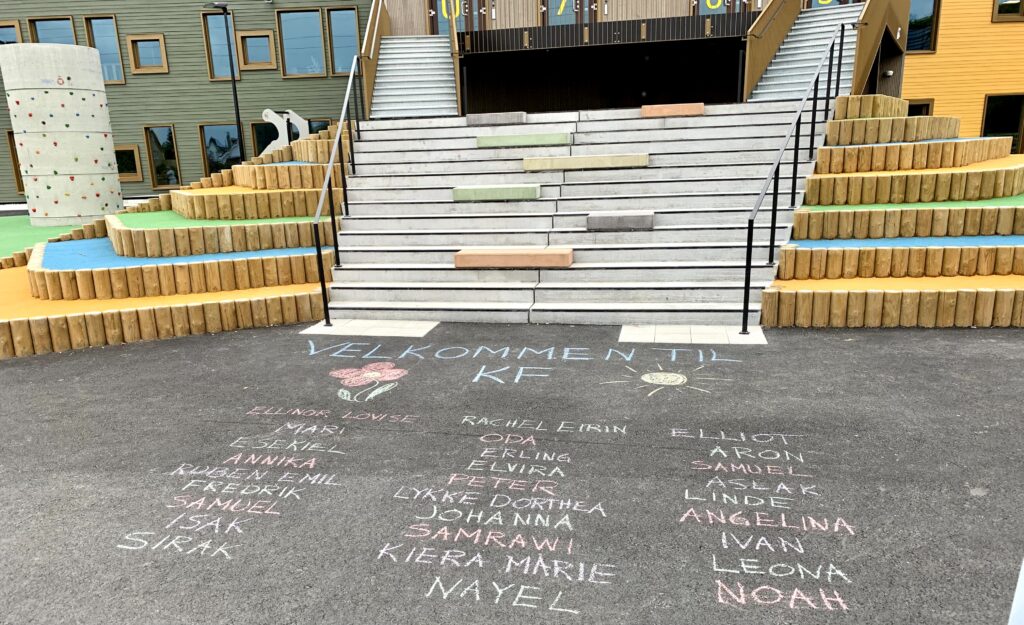 VELKOMMEN TIL
KF
ELLINOR LOVISE
MARI
ESEKIEL
ANNIKA
RUBEN EMIL
FREDRIK
SAMUEL
ISAK
SIRAK
RACHEL EIRIN
ODA
ERLING
ELVIRA
PETER
LYKKE DORTHEA
JOHANNA
SAMRAWI
KIERA MARIE
NAYEL
ELLIOT
ARON
SAMUEL
ASLAK
LINDE
ANGELINA
IVAN
LEONA
NOAH